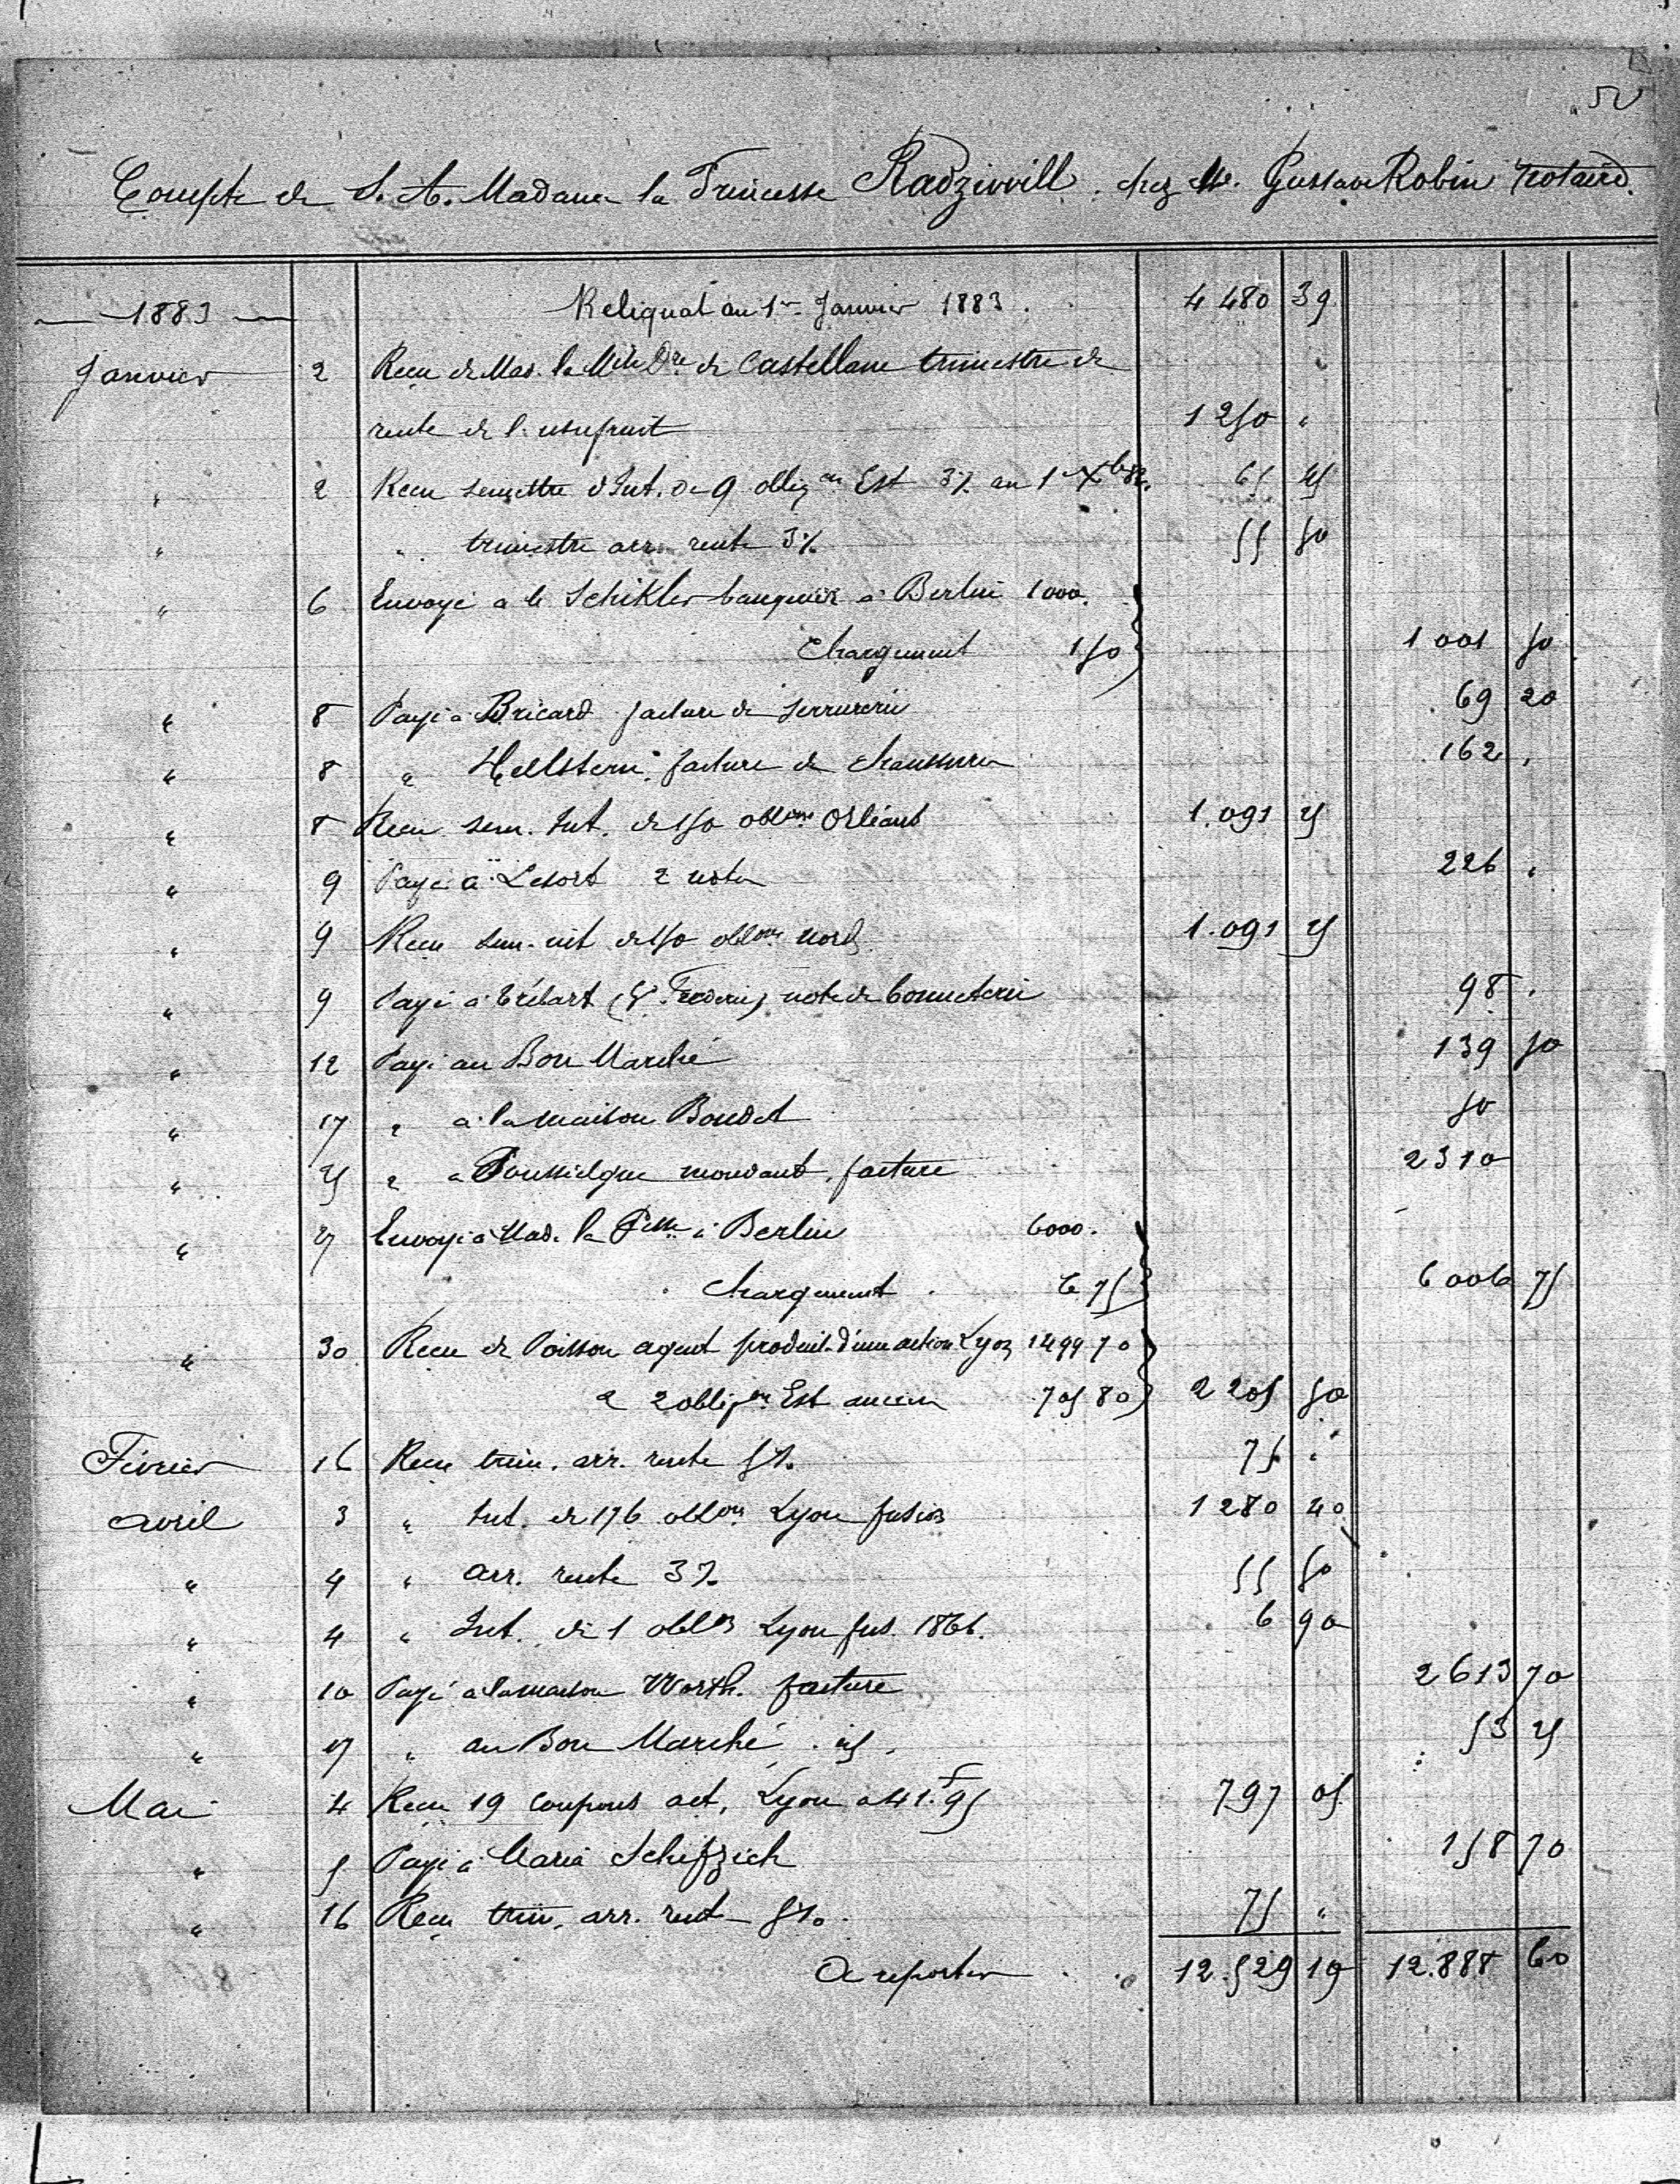 52
Compte de S. A. Madame la Princesse Radziwill chez Me. Gustave Robin notaire.
1883 Reliquat au 1er Janvier 1883. 4 480 39
Janvier 2 Reçu de Mad. la Mise Dre de Castellane trimestre de
rente de l'usufruit 1 250 "
" 2 Reçu semestre d'Int. de 9 oblig on Est 3% au 1er Xbre 82. 65 25
" " trimestre arr. rente 3% 55 50
" 6 Envoyé à Schikler banquier à Berlin 1000.
Chargement 1 50 1 001 50
" 8 Payé à Bricard facture de serrurerie 69 20
" 8 " Hellstern facture de chaussures 162 "
" 8 Reçu sem. Int. de 150 oblons Orléans 1.091 25
" 9 Payé à Lesort 2 notes 226 "
" 9 Reçu sem. int de 150 oblons Nord 1.091 25
" 9 Payé à Trébart note de bonneterie 98 "
" 12 Payé au Bon Marché 139 50
" 17 " à la maison Boudet 50
" 25 " à Poussielgue facture 2310
" 27 Envoyé à Mad. la Pesse à Berlin 6000.
Chargement 6 75 6 006 75
" 30 Reçu de Poisson agent produit d'une action Lyon 1499 70
& 2 oblig on Est ancien 705 80 2 205 50
Février 16 Reçu trim. arr. rente 5%. 75 "
Avril 3 " Int. de 176 oblons Lyon fusion 1 280 40
" 4 " arr. rente 3% 55 50
" 4 " Int. de 1 oblon Lyon fus. 1866. 6 90
" 10 Payé à la maison Worth. facture 2 613 70
" 17 " au Bon Marché id. 53 25
Mai 4 Reçu 19 coupons act. Lyon à 41 F 95 797 05
" 5 Payé à Maria Schifzich 158 70
" 16 Reçu trim. arr. rente 5%. 75 "
A reporter 12.529 19 12.888 60